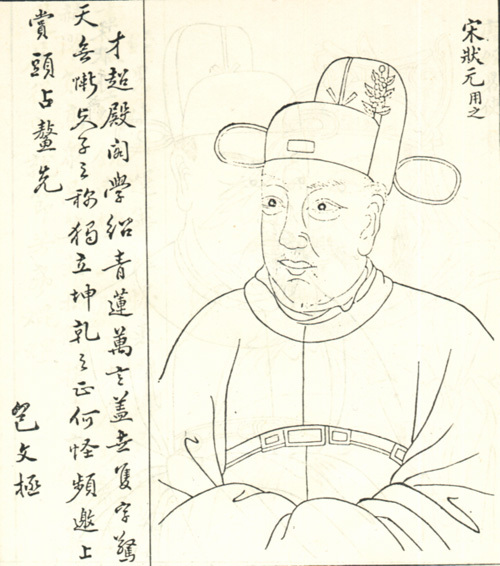 宋狀元用之
才超殿閣學紹青蓮萬言蓋世隻字驚
天無慚子之称獨立坤乾之正何怪頻邀上
賞頭占鰲先
文極